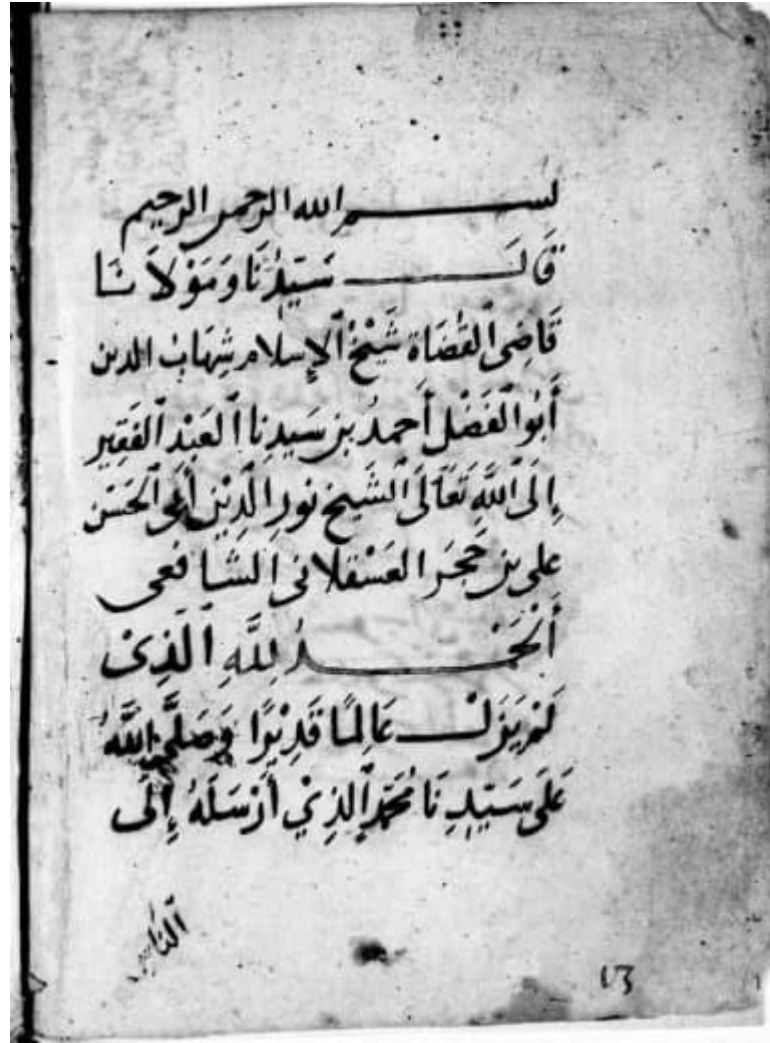 بسم الله الرحمن الرحيم
قَالَ سَيّدُنَا وَمَوْلَانَا
قَاضِي ٱلقُضَاة شَيْخُ ٱلإِسلام شِهَابُ الدين
أَبُو ٱلفَضْل أَحمدُ بن سَيدِنا ٱلعَبْد ٱلفَقِير
إِلَى ٱللَّهِ تَعَالَى ٱلشَّيخ نورِ ٱلدِيْن أَبي ٱلحَسَن
على بن حَجَر العَسْقلانى الشافعى
أَلْحَمْدُ لِلَّهِ ٱلَّذِىْ
لَمْ يَزَلْ عَالِمًا قَدِيْرًا وَصَلَّى اللَّهُ
عَلَى سَيّدِنَا مُحَمَّدٍ ٱلذِيْ أَرْسَلَهُ إِلَى
ٱلنَّاسِ
١٣